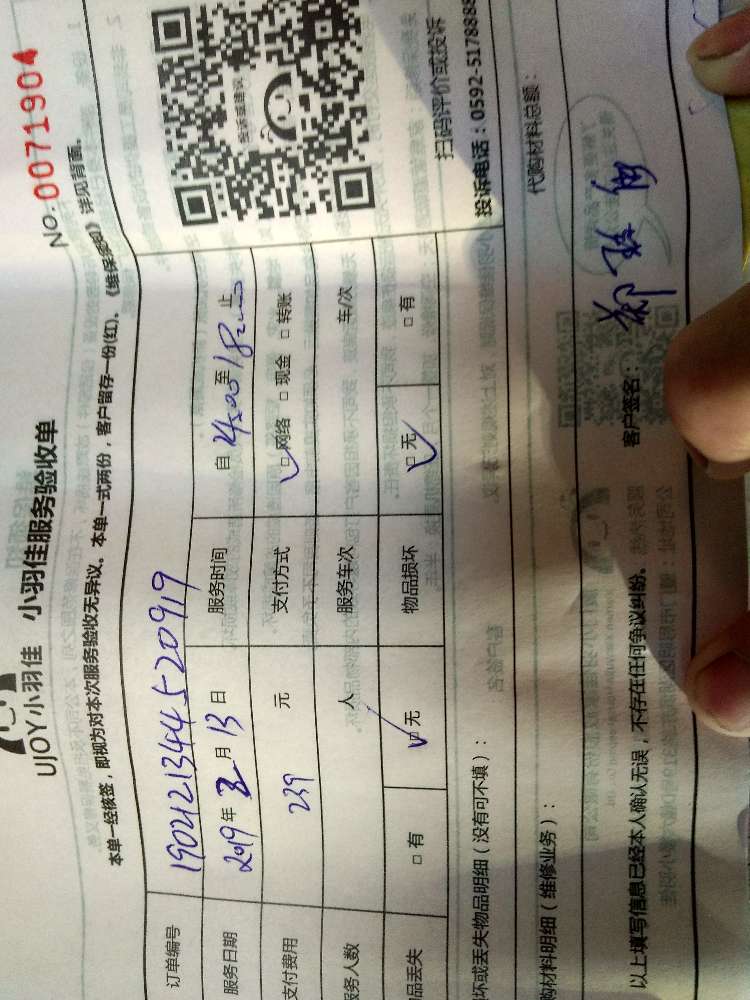 NO.0071904
UJOY小羽佳 小羽佳服务验收单
本单一经核签，即视为对本次服务验收无异议。本单一式两份，客户留存一份(红)、《维保须知》详见背面。
订单编号 1902121344520919
服务日期 2019年2月13日 服务时间 自 14:00 至 18:00 止
支付费用 239 元 支付方式 □网络 □现金 □转账
服务人数 人 服务车次 车/次
品丢失 □有 □无 物品损坏 □无 □有
扫码评价或投诉
投诉电话：0592-5178888
坏或丢失物品明细（没有可不填）：
购材料明细（维修业务）： 代购材料总额：
以上填写信息已经本人确认无误，不存在任何争议纠纷。 客户签名：